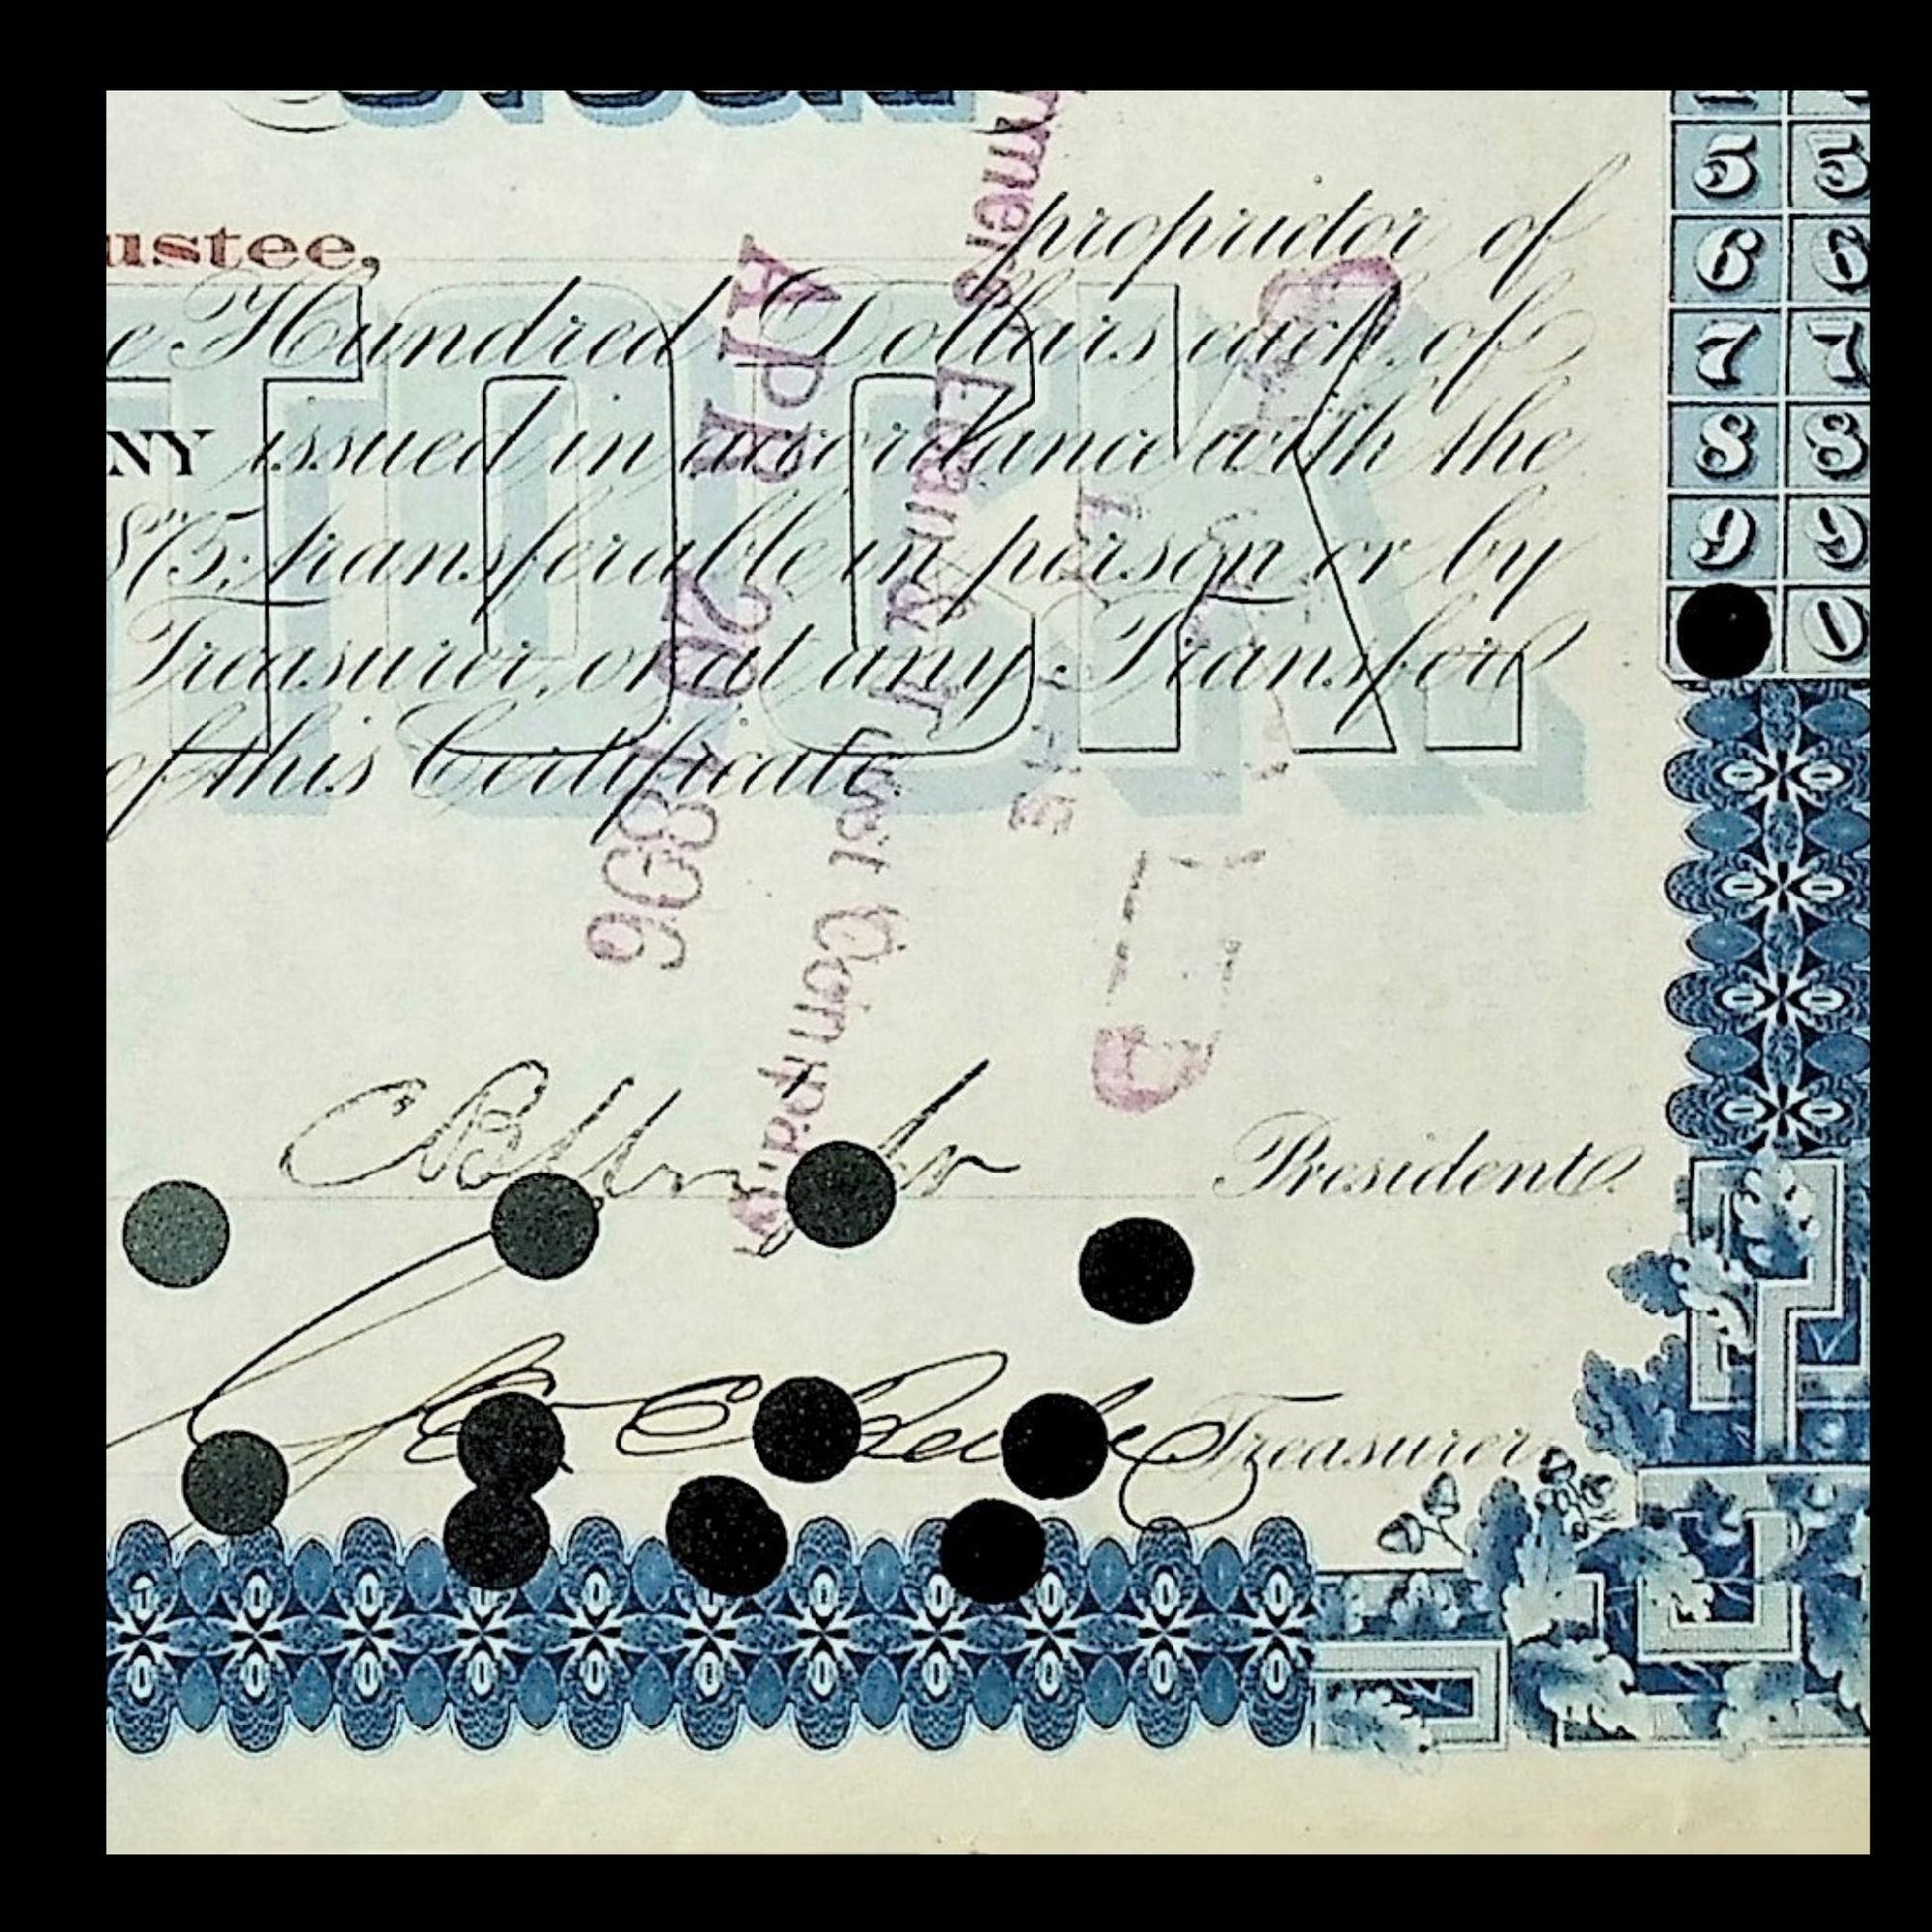 ustee,
proprietor of
e Hundred Dollars each of
STOCK.
NY issued in accordance with the
transferable in person or by
Treasurer, or at any Transfer
of this Certificate.
APR 20 1896
rmers' Loan & Trust Company
President.
Treasurer.
5 5
6 6
7 7
8 8
9 9
0